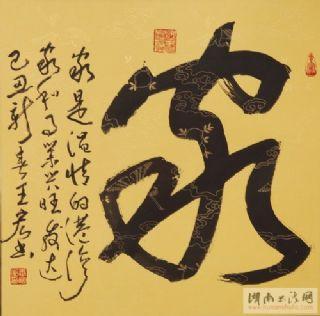 家
家是温情的港湾
家和事业兴旺发达
己丑新春王宏书
湖南书法网